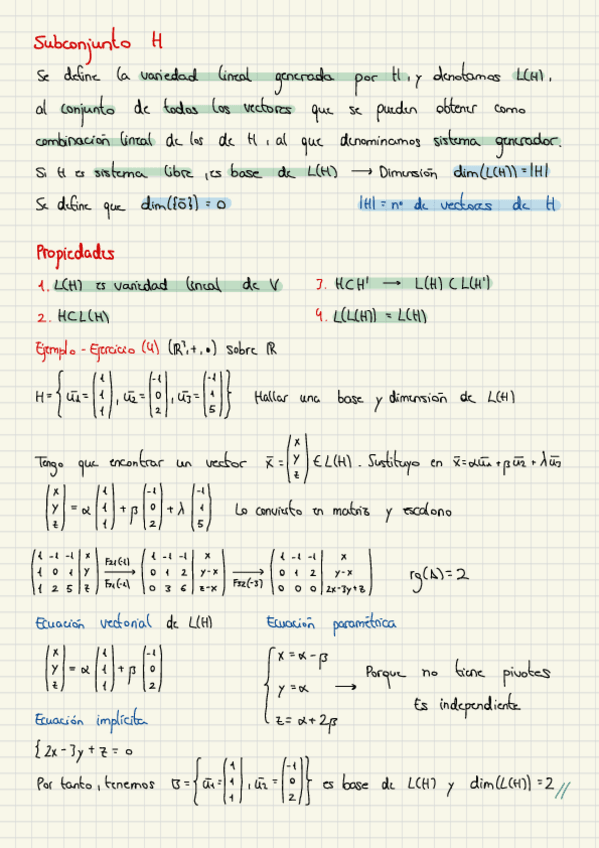 Subconjunto H
Se define la variedad lineal generada por H, y denotamos L(H),
al conjunto de todos los vectores que se pueden obtener como
combinación lineal de los de H, al que denominamos sistema generador.
Si H es sistema libre, es base de L(H) → Dimensión dim(L(H)) = |H|
Se define que dim({ō}) = 0 |H| = nº de vectores de H
Propiedades
1. L(H) es variedad lineal de V 3. H⊂H' → L(H)⊂L(H')
2. H⊂L(H) 4. L(L(H)) = L(H)
Ejemplo - Ejercicio (4) (R³,+,•) sobre R
H = {ū1 = (1 1 1), ū2 = (-1 0 2), ū3 = (-1 1 5)} Hallar una base y dimensión de L(H)
Tengo que encontrar un vector x̄ = (x y z) ∈ L(H). Sustituyo en x̄ = αū1 + βū2 + λū3
(x y z) = α (1 1 1) + β (-1 0 2) + λ (-1 1 5) Lo convierto en matriz y escalono
(1 -1 -1 | x
1 0 1 | y
1 2 5 | z) F21(-1) F31(-1) → (1 -1 -1 | x
0 1 2 | y-x
0 3 6 | z-x) F32(-3) → (1 -1 -1 | x
0 1 2 | y-x
0 0 0 | 2x-3y+z) rg(A) = 2
Ecuación vectorial de L(H) Ecuación paramétrica
(x y z) = α (1 1 1) + β (-1 0 2)
{x = α - β
y = α
z = α + 2β → Porque no tiene pivotes
Es independiente
Ecuación implícita
{2x - 3y + z = 0
Por tanto, tenemos B = {ū1 = (1 1 1), ū2 = (-1 0 2)} es base de L(H) y dim(L(H)) = 2 //